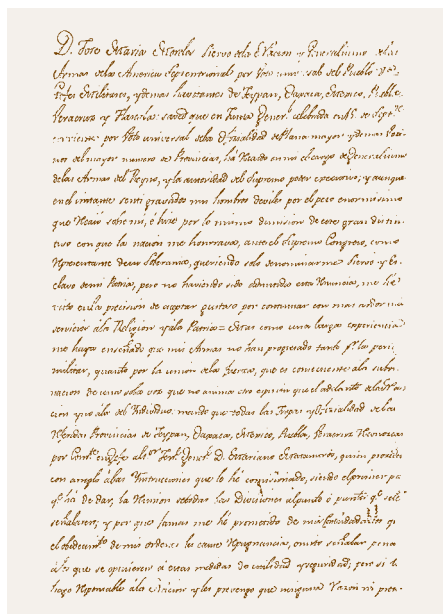 D. José Maria Morelos Siervo dela Nacion y Generalisimo delas
Armas dela America Septentrional por Voto universal del Pueblo
Militares, y demas havitantes de Tecpan, Oaxaca, Mexico, Puebla,
Veracruz y sabed que en Junta Gener.l celebrada en 15. de Sept.e
corriente por Voto universal dela Oficialidad de Plana mayor y demas
del mayor numero de Provincias, ha recaido en mi el cargo de Generalisimo
delas Armas del Reyno, y la autoridad del Supremo poder executivo; y aunque
en el instante senti gravados mis hombros deviles por el peso enormisimo
que recaió sobre mi, é hise por lo mismo dimision de este gran distin-
tivo con que la nacion me honrrava, ante el Supremo Congreso, como
representante de su Soberania, queriendo solo denominarme Siervo y Es-
clavo de mi Patria, pero no haviendo sido admitida esta renuncia, me he
visto en la precision de aceptar gustoso por continuar con mas ardor mis
servicios á la Religion y á la Patria = Mas como una larga experiencia
me haya enseñado que mis Armas no han progresado tanto p.r la peri
militar, quanto por la union dela fuerza, que es consiguiente ala subor-
nacion de una sola voz que no anima otro espiritu que el adelanto de la Na-
cion y no al del Individuo; mando que todas las Tropas y Oficialidad de las
referidas Provincias de Tecpan, Oaxaca, Mexico, Puebla, Veracruz reconozcan
por al Then.te Gener.l D. Mariano Matamoros, quien procederá
con amplo á las Instrucciones que le hé comisionado, siendo el primer pa
q.e há de dar, la reunion de todas las Divisiones al punto ó puntos q.e sele
señalaren; y por que jamas me hé prometido de mis q
el obedecim.to de mis ordenes les cause repugnancia, omito señalar pena
á los que se opusieren á estas medidas de utilidad y seguridad, pero si l
hago responsable á la Nacion y les prevengo que ninguna razon ni pre-